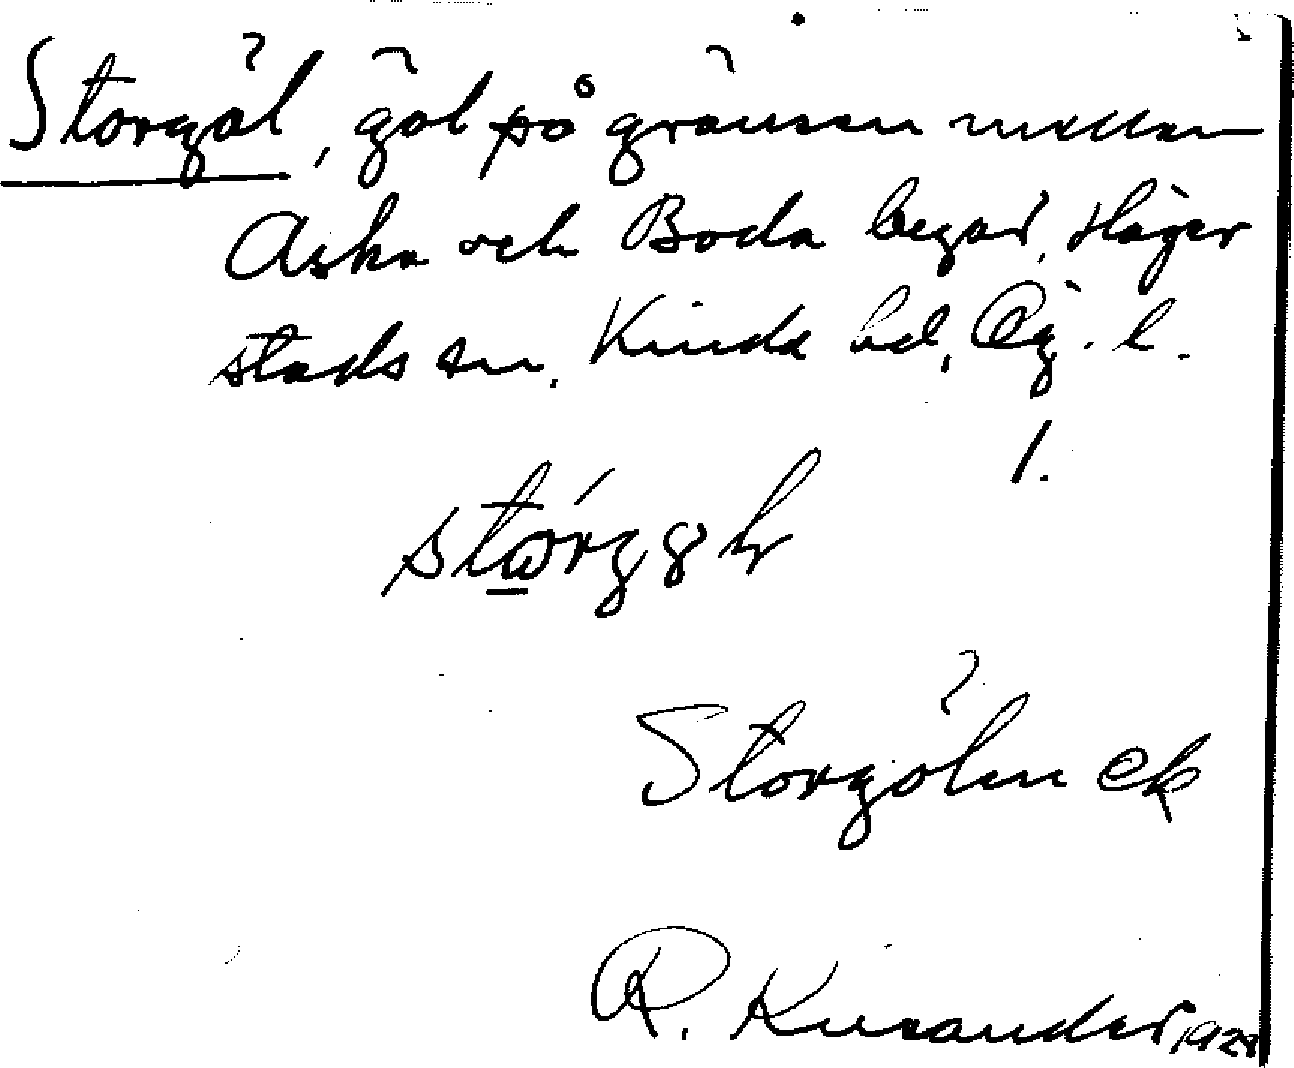 Storgöl, göl på gränsen mellan
Aska och Boda begär, Häger
stads sn. Kinda hd, Ög. l.
1.
Storgölen ek
R. Kusander 192